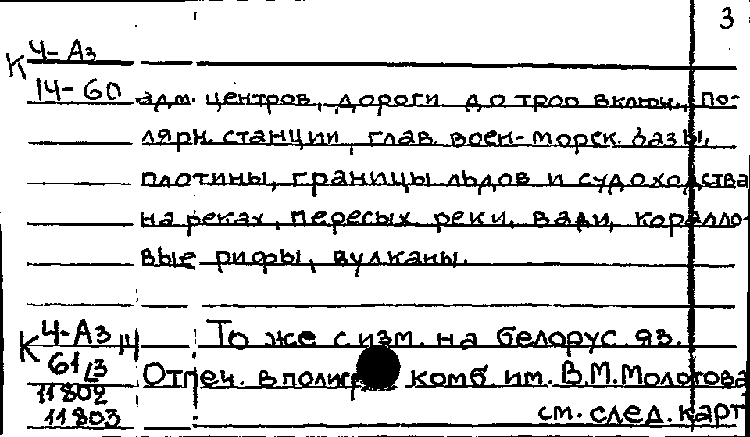 3
К 4-Аз
14-60 адм. центров, дороги до троп включ., по-
лярн. станции, глав. воен-морск. базы,
плотины, границы льдов и судоходства
на реках, пересых. реки, вади, коралло-
вые рифы, вулканы.
К 4-Аз 14 То же с изм. на белорус. яз.
61 Отпеч. в полигр. комб. им. В.М. Молотова
11802
11803 см. след. карт